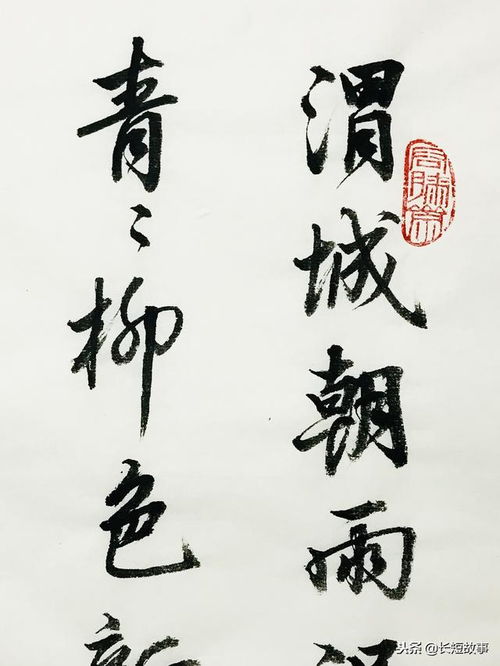 渭城朝雨
青〻柳色新
头条 @长短故事